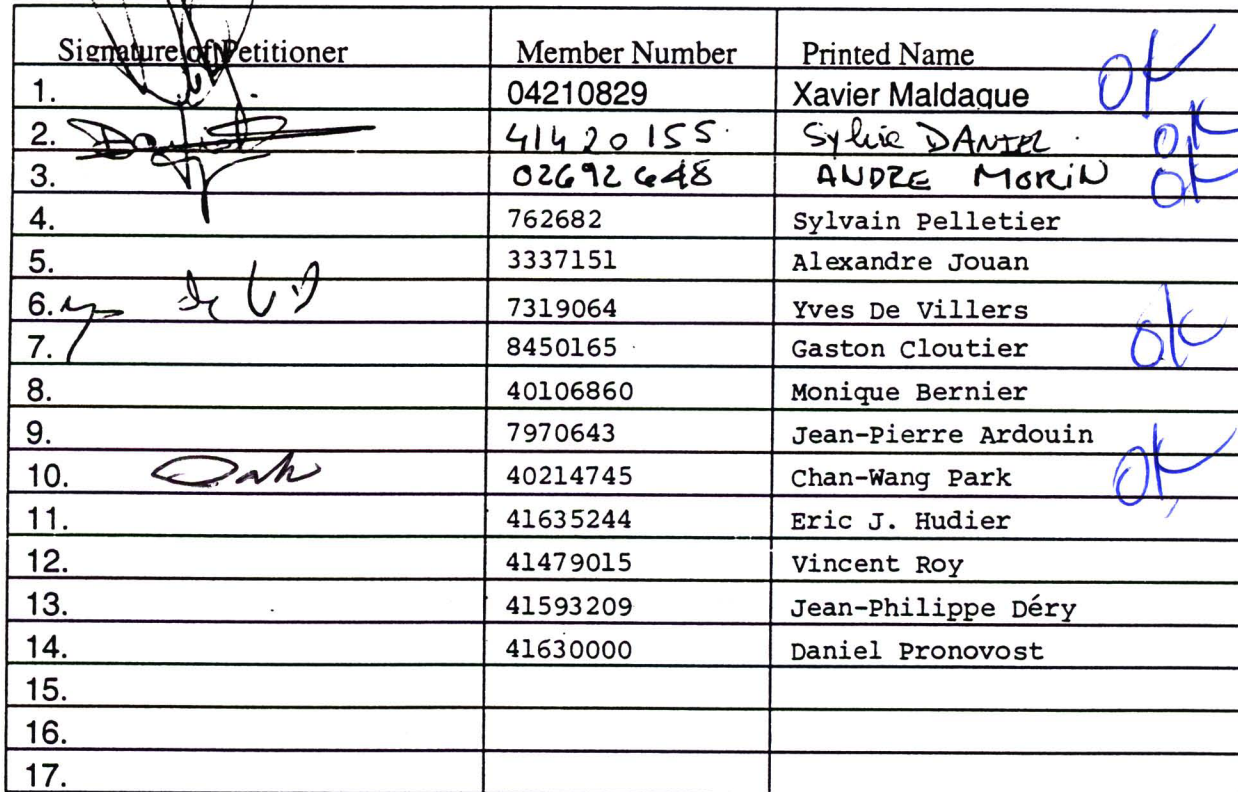 Signature of Petitioner Member Number Printed Name
1. 04210829 Xavier Maldague OK
2. Daniel 41420155 Sylvie DANIEL OK
3. 02692648 ANDRE MORIN OK
4. 762682 Sylvain Pelletier
5. 3337151 Alexandre Jouan
6. 7319064 Yves De Villers OK
7. 8450165 Gaston Cloutier
8. 40106860 Monique Bernier
9. 7970643 Jean-Pierre Ardouin
10. 40214745 Chan-Wang Park OK
11. 41635244 Eric J. Hudier
12. 41479015 Vincent Roy
13. 41593209 Jean-Philippe Déry
14. 41630000 Daniel Pronovost
15.
16.
17.